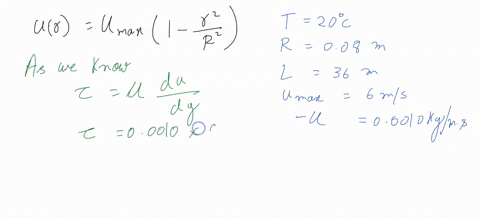 u(r) = Umax (1 - r²/R²)
As we know
τ = μ du/dy
τ = 0.0010
T = 20°c
R = 0.08 m
L = 36 m
umax = 6 m/s
-μ = 0.0010 kg/m.s